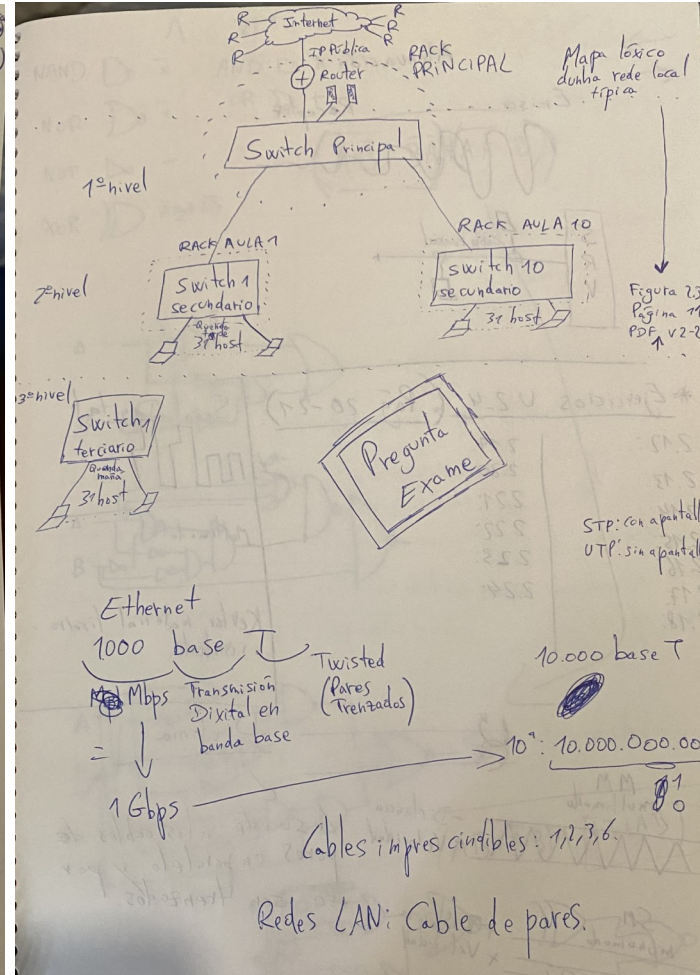 R
Internet
R
R
R
R
R
IP Pública
Router
RACK
PRINCIPAL
Mapa lóxico
dunha rede local
típica
Switch Principal
1º nivel
RACK AULA 1
RACK AULA 10
2º nivel
Switch 1
secundario
Quenda
tarde
31 host
switch 10
secundario
31 host
Figura 2.3
Página 11
PDF V2-2
3º nivel
Switch 1
terciario
Quenda
maña
31 host
Pregunta
Exame
STP: con apantall
UTP: sin apantall
Ethernet
1000 base T
Mbps
Transmisión
Dixital en
banda base
Twisted
(Pares
Trenzados)
=
1 Gbps
10.000 base T
10ª: 10.000.000.00
1
0
Cables imprescindibles: 1,2,3,6.
Redes LAN: Cable de pares.